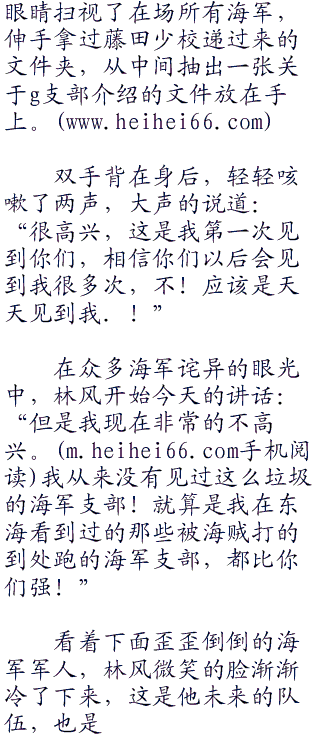 眼睛扫视了在场所有海军，
伸手拿过藤田少校递过来的
文件夹，从中间抽出一张关
于g支部介绍的文件放在手
上。(www.heihei66.com)
双手背在身后，轻轻咳
嗽了两声，大声的说道：
“很高兴，这是我第一次见
到你们，相信你们以后会见
到我很多次，不！应该是天
天见到我．！”
在众多海军诧异的眼光
中，林风开始今天的讲话：
“但是我现在非常的不高
兴。(m.heihei66.com手机阅
读)我从来没有见过这么垃圾
的海军支部！就算是我在东
海看到过的那些被海贼打的
到处跑的海军支部，都比你
们强！”
看着下面歪歪倒倒的海
军军人，林风微笑的脸渐渐
冷了下来，这是他未来的队
伍，也是